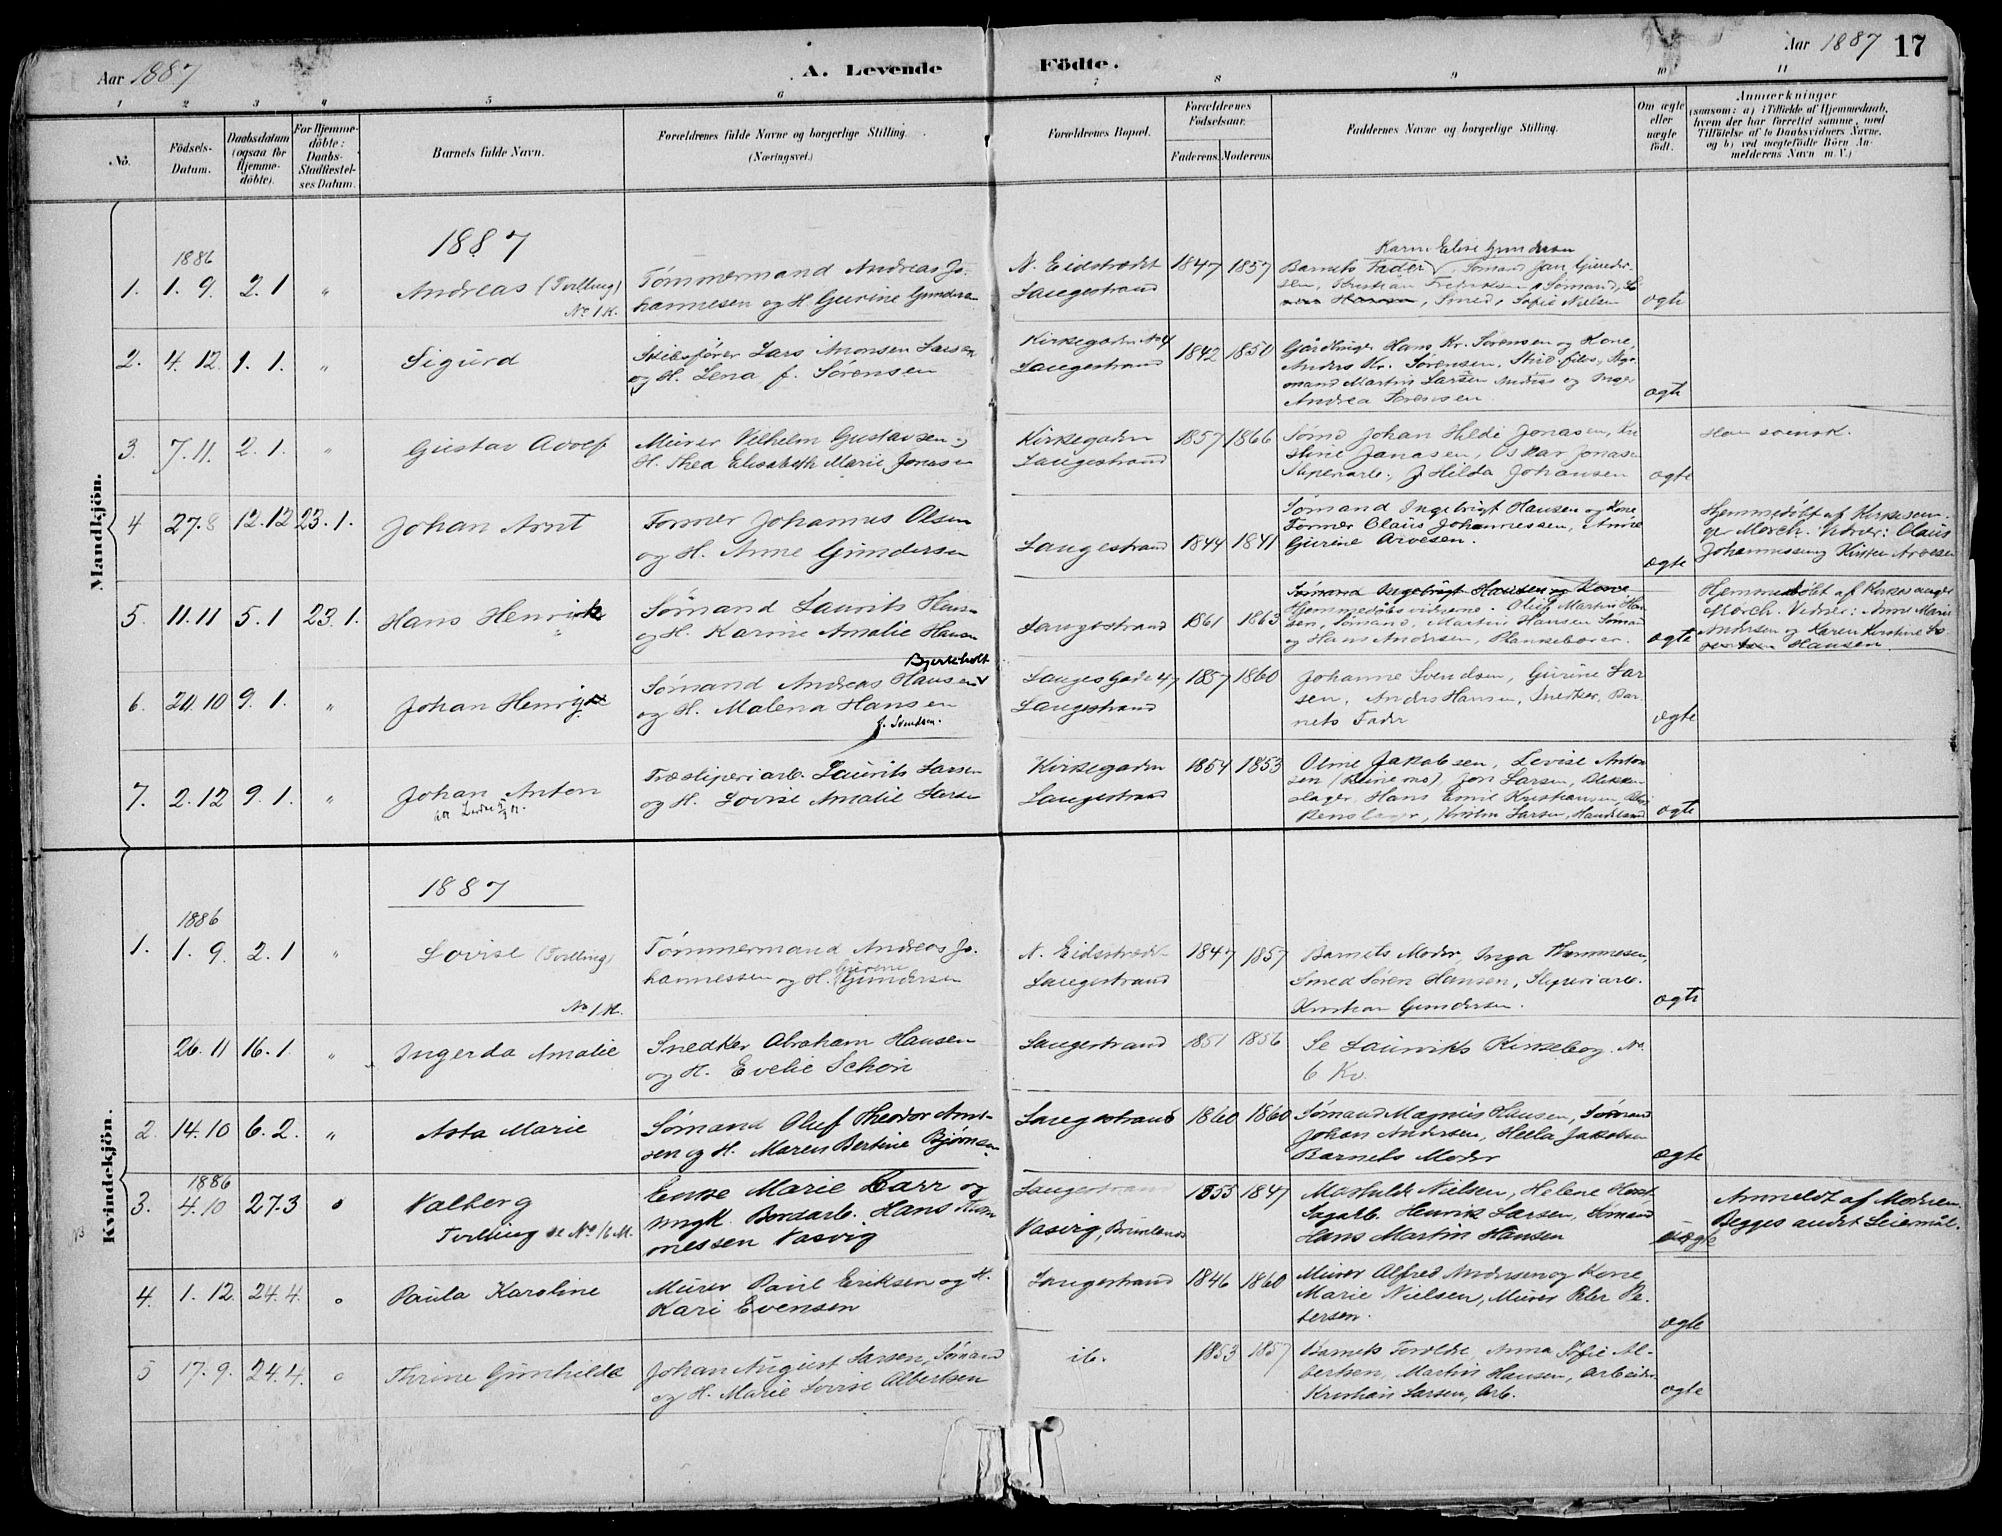 Aar 1887
A. Levende Födte.
Aar 1887 17
1 2 3 4 5 6 7 8 9 10 11
No.
Födsels-
Datum.
Daabsdatum
(ogsaa for
Hjemme-
döbte).
For Hjemme-
döbte:
Daabs-
Stadfæstel-
ses Datum.
Barnets fulde Navn.
Forældrenes fulde Navne og borgerlige Stilling.
(Næringsvei.)
Forældrenes Bopæl.
Forældrenes
Födselsaar.
Faderens. Moderens.
Faddernes Navne og borgerlige Stilling.
Om ægte
eller
uægte
födt.
Anmærkninger
(saasom: a) i Tilfælde af Hjemmedaab,
hvem der har forrettet samme, med
Tilföielse af to Daabsvidners Navne,
og b) ved uægtefödte Börn An-
melderens Navn m. V.)
Mandkjön.
1887
1. 1886 1. 9. 2. 1 " Andreas (Tvilling)
No 1 K.
Tømmermand Andreas Jo-
hannesen og H. Gurine Gunders
N. Eidstrædet
Langestrand
1847 1857
Karen Elise Gundersen
Barnets Fader, Sømand Jan Gunder-
sen, Kristian Fredriksen, Sømand,
Hansen, Smed, Sofie Nielsen
ægte
2. 4. 12. 1. 1. " Sigurd
Skibsfører Lars Monsen Larsen
og H. Lena f. Sørensen
Kirkegaden No 4
Langestrand
1842 1850
Gårdbruger Hans Kr. Sørensen og Kone,
Anders Kr. Sørensen, Stud. filos.,
Martin Larsen Andrea og Inger
Andrea Sørensen
ægte
3. 7. 11. 2. 1. " Gustav Adolf
Murer Vilhelm Gustavsen og
H. Thea Elisabeth Marie Jonasen
Kirkegaden
Langestrand
1857 1866
Sømd Johan Hilde Jonasen, Kri
stine Janasen, Oskar Jonasen
Sliperiarb., J Hilda Johansen
ægte
Han svensk.
4 27. 8 12. 12 23. 1. Johan Arnt
Former Johannes Olsen
og H. Anne Gundersen
Langestrand
1844 1841
Sømand Ingebrigt Hansen og Kone,
Former Claus Johannessen, Anne
Gurine Arvesen.
ægte
Hjemmedøbt af Kirkesan-
ger Morch. Vidner: Claus
Johannessen og Kirsten Arvesen
5. 11. 11 5. 1 23. 1. Hans Henrik
Sømand Laurits Hansen
og H. Karine Amalie Hansen
Langestrand
1861 1863
Sømand Ingebrigt Hansen og Kone
Hjemmedøbsvidnerne. Oluf Martin Han-
sen, Sømand, Martin Hansen Sømand
og Hans Andersen, Plankebærer.
ægte
Hjemmedøbt af Kirkesanger
Morch. Vidner: Anne Marie
Andersen og Karen Kirstine
Hansen.
6. 20. 10 9. 1. " Johan Henrik
Bjerkeholt
Sømand Andreas Hansen
og H. Malena Hansen
f. Svendsen.
Langes Gade 47
Langestrand
1857 1860
Johanne Svendsen, Gurine Lar
sen, Anders Hansen, Snedker, Bar-
nets Fader
ægte
7. 2. 12 9. 1. " Johan Anton
Træsliperiarb. Laurits Larsen
og H. Lovise Amalie Larsen
Kirkegaden
Langestrand
1854 1853
Oline Jakobsen, Levise Anton
sen (Reinemo) Jon Larsen, Blikken
slager, Hans Emil Kristiansen,
Renslager, Kristin Larsen,
ægte
Kvindekjön.
1887
1. 1886 1. 9. 2. 1 " Lovise (Tvilling)
No 1 M.
Tømmermand Andreas Jo-
hannessen og H. Gurine Gundersen
N. Eidsstrædet
Langestrand
1847 1857
Barnets Moder, Inga Thommesen,
Smed Søren Hansen, Sliperiarb.
Kristian Gundersen.
ægte
26. 11 16. 1 " Ingerda Amalie
Snedker Abraham Hansen
og H. Evelie Schøn
Langestrand
1851 1856
Se Laurviks Kirkebog. No.
6 Kv.
2. 14. 10 6. 2. " Asta Marie
Sømand Oluf Theodor Arne-
sen og H. Maren Bertine Bjørnsen
Langestrand
1860 1860
Sømand Magnus Hansen, Sømand
Johan Andersen, Hella Jakobsen
Barnets Moder
ægte
3. 1886 4. 10 27. 3 " Valberg
Tvilling se No 16 M.
Enke Marie Barr og
Ungk. Bordarb. Hans Thom
messen Vasvig
Langestrand
Vasvig, Brunlanes
1855 1847
Mathilde Nielsen, Helene Horst
Sagarb. Henrik Larsen, Sømand
Hans Martin Hansen
uægte
Anmeldt af Moderen.
Begges andet Leiemål.
4. 1. 12. 24. 4. " Paula Karoline
Murer Paul Eriksen og H.
Kari Evensen
Langestrand
1846 1860
Murer Alfred Andersen og Kone
Marie Nielsen, Murer Peter Pe-
tersen.
ægte
5 17. 9. 24. 4. " Thrine Gunhilde
Johan August Larsen, Sømand
og H. Marie Lovise Albertsen
ib.
1853 1857
Barnets Foreldre, Anna Sofie Al-
bertsen, Martin Hansen, Arbeider
Kristian Larsen, Arb.
ægte